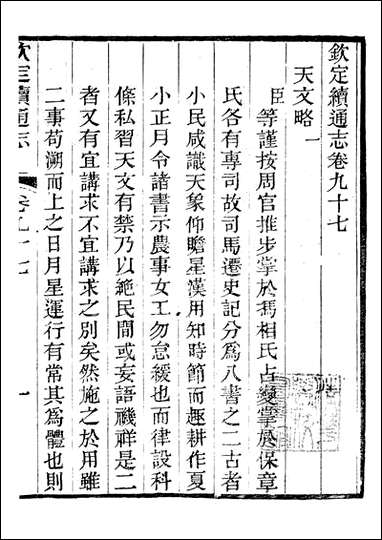 欽定續通志卷九十七
天文略一
臣等謹按周官推步掌於馮相氏占變掌於保章
氏各有專司故司馬遷史記分爲八書之二古者
小民咸識天象仰瞻星漢用知時節而趣耕作夏
小正月令諸書示農事女工勿怠緩也而律設科
條私習天文有禁乃以絶民間或妄語禨祥是二
者又有宜講求不宜講求之別矣然施之於用雖
二事苟溯而上之日月星運行有常其爲體也則
欽定續通志
卷九十七
一